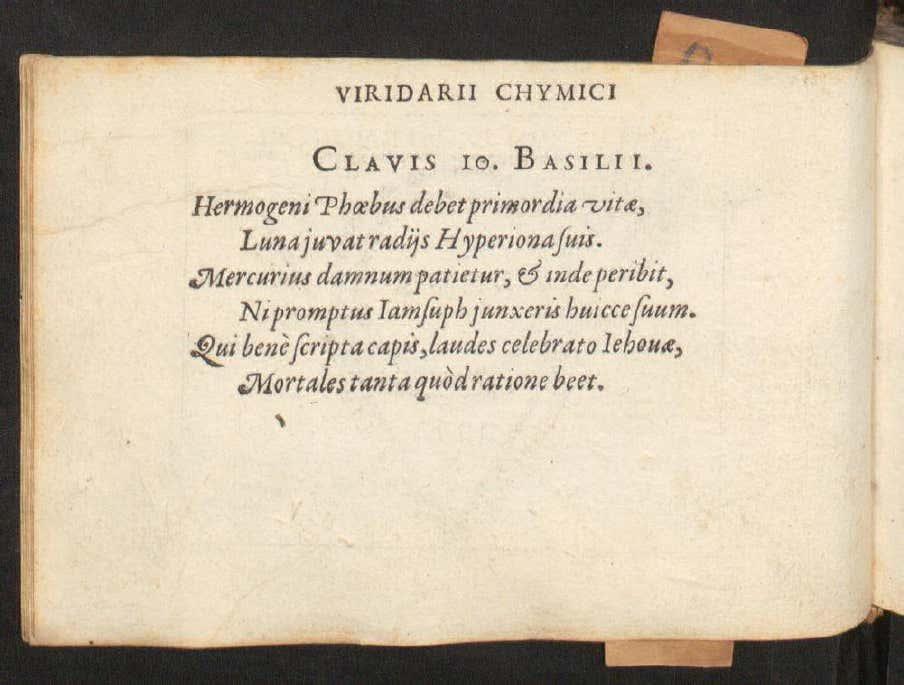 VIRIDARII CHYMICI
CLAVIS 10. BASILII.
Hermogeni Phœbus debet primordia vitæ,
Luna juvat radijs Hyperiona ſuis.
Mercurius damnum patietur, & inde peribit,
Ni promptus Iamſuph junxeris huicce ſuum.
Qui benè ſcripta capis, laudes celebrato Iehouæ,
Mortales tanta quòd ratione beet.